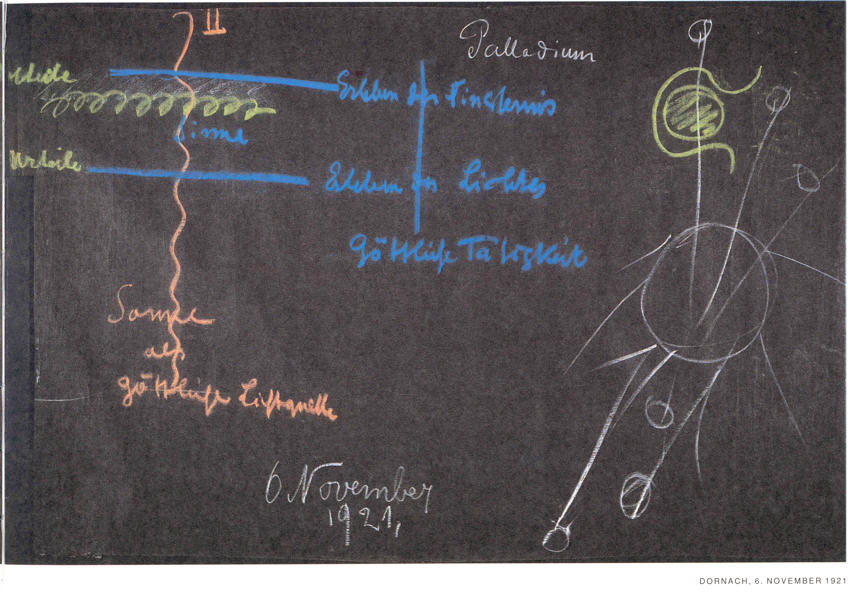 II
Palladium
Erleben der Finsternis
Sinne
Erleben des Lichtes
göttliche Tätigkeit
Sonne
als
göttliche Lichtquelle
6 November
1921,
DORNACH, 6. NOVEMBER 1921